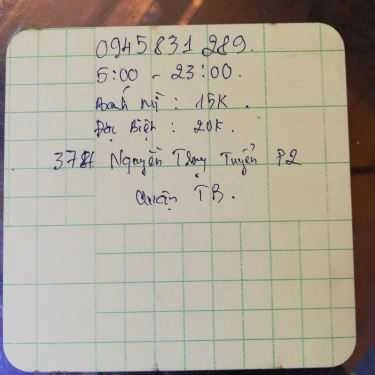 0945831289.
5:00 - 23:00.
Bánh Mì : 15K.
Đặc Biệt : 20K.
Nguyễn Trọng Tuyển P2
Quận TB.